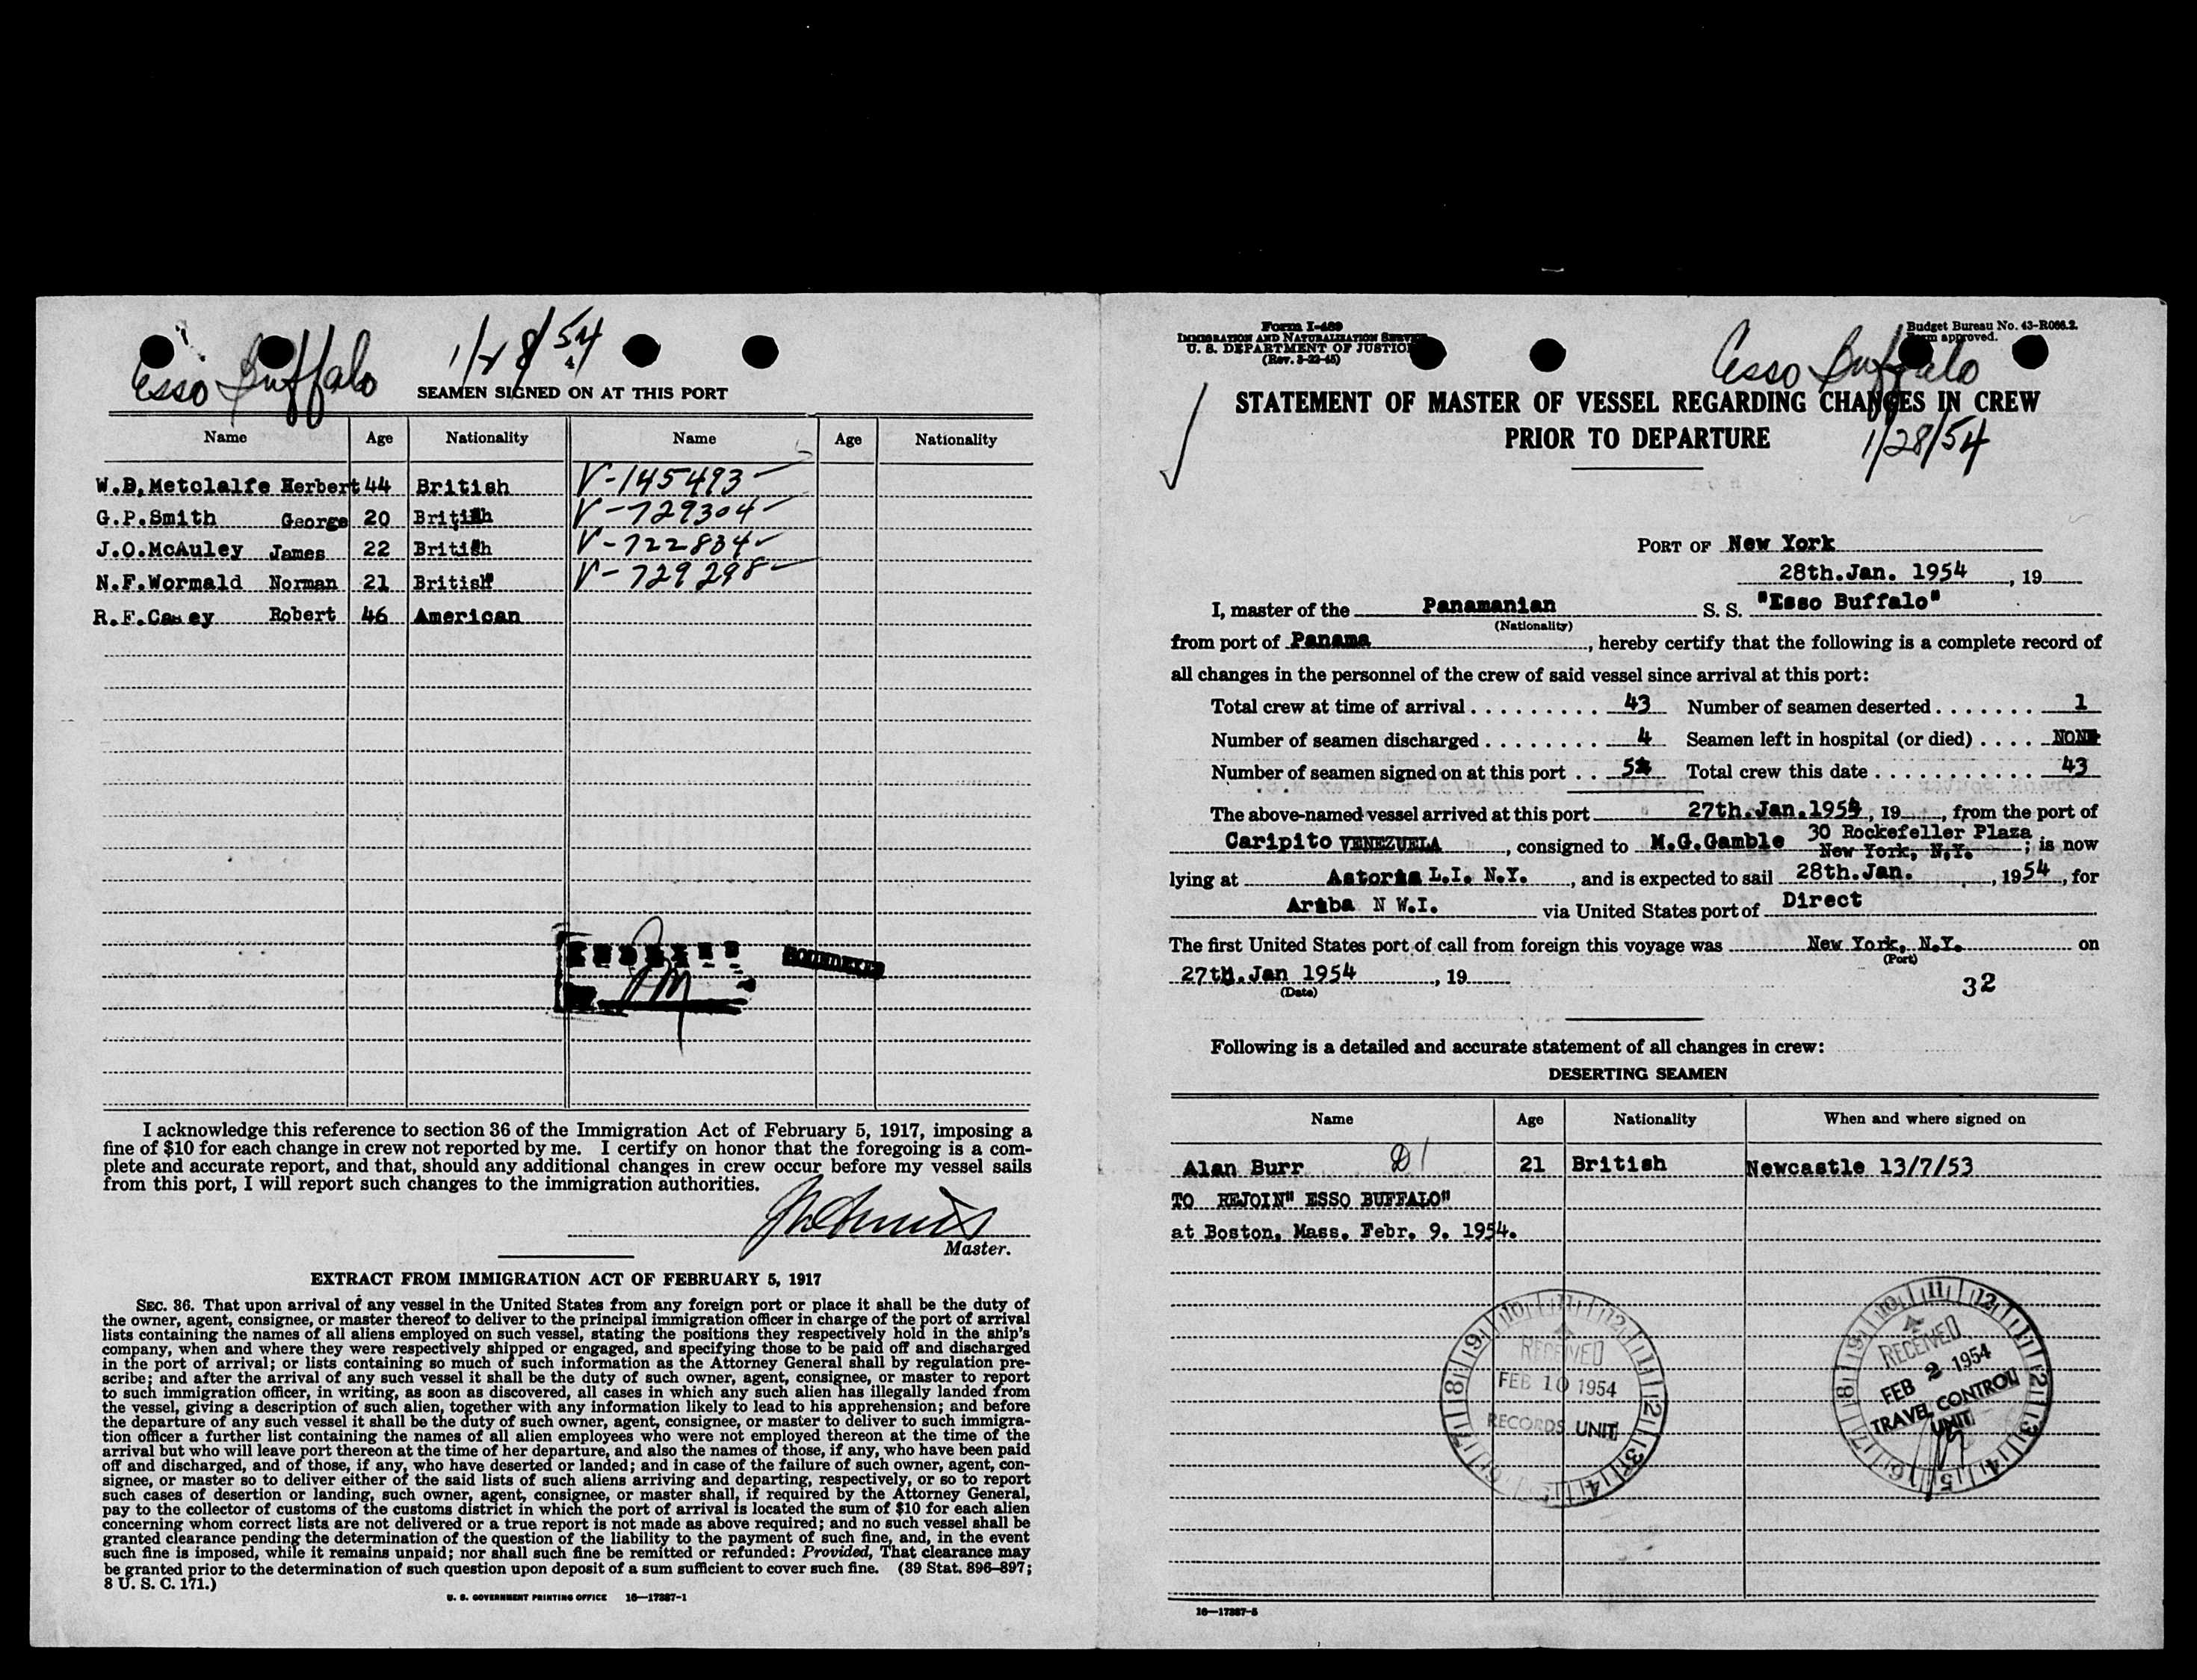 Esso Buffalo 1/28/54
SEAMEN SIGNED ON AT THIS PORT
Name Age Nationality Name Age Nationality
W.D.Metclalfe Herbert 44 British V-145493
G.P.Smith George 20 British V-729304
J.O.McAuley James 22 British V-722834
N.F.Wormald Norman 21 British V-729298
R.F.Casey Robert 46 American
I acknowledge this reference to section 36 of the Immigration Act of February 5, 1917, imposing a
fine of $10 for each change in crew not reported by me. I certify on honor that the foregoing is a com-
plete and accurate report, and that, should any additional changes in crew occur before my vessel sails
from this port, I will report such changes to the immigration authorities.
Master.
EXTRACT FROM IMMIGRATION ACT OF FEBRUARY 5, 1917
SEC. 36. That upon arrival of any vessel in the United States from any foreign port or place it shall be the duty of
the owner, agent, consignee, or master thereof to deliver to the principal immigration officer in charge of the port of arrival
lists containing the names of all aliens employed on such vessel, stating the positions they respectively hold in the ship's
company, when and where they were respectively shipped or engaged, and specifying those to be paid off and discharged
in the port of arrival; or lists containing so much of such information as the Attorney General shall by regulation pre-
scribe; and after the arrival of any such vessel it shall be the duty of such owner, agent, consignee, or master to report
to such immigration officer, in writing, as soon as discovered, all cases in which any such alien has illegally landed from
the vessel, giving a description of such alien, together with any information likely to lead to his apprehension; and before
the departure of any such vessel it shall be the duty of such owner, agent, consignee, or master to deliver to such immigra-
tion officer a further list containing the names of all alien employees who were not employed thereon at the time of the
arrival but who will leave port thereon at the time of her departure, and also the names of those, if any, who have been paid
off and discharged, and of those, if any, who have deserted or landed; and in case of the failure of such owner, agent, con-
signee, or master so to deliver either of the said lists of such aliens arriving and departing, respectively, or so to report
such cases of desertion or landing, such owner, agent, consignee, or master shall, if required by the Attorney General,
pay to the collector of customs of the customs district in which the port of arrival is located the sum of $10 for each alien
concerning whom correct lists are not delivered or a true report is not made as above required; and no such vessel shall be
granted clearance pending the determination of the question of the liability to the payment of such fine, and, in the event
such fine is imposed, while it remains unpaid; nor shall such fine be remitted or refunded: Provided, That clearance may
be granted prior to the determination of such question upon deposit of a sum sufficient to cover such fine. (39 Stat. 896–897;
8 U. S. C. 171.)
U. S. GOVERNMENT PRINTING OFFICE 16—17387-1
Form I-489
IMMIGRATION AND NATURALIZATION SERVICE
U. S. DEPARTMENT OF JUSTICE
(Rev. 3-22-45)
Budget Bureau No. 43-R066.2.
Form approved.
Esso Buffalo
STATEMENT OF MASTER OF VESSEL REGARDING CHANGES IN CREW
PRIOR TO DEPARTURE
1/28/54
PORT OF New York
28th.Jan. 1954, 19
I, master of the Panamanian S. S. "Esso Buffalo"
(Nationality)
from port of Panama, hereby certify that the following is a complete record of
all changes in the personnel of the crew of said vessel since arrival at this port:
Total crew at time of arrival 43 Number of seamen deserted 1
Number of seamen discharged 4 Seamen left in hospital (or died) NONE
Number of seamen signed on at this port 5 Total crew this date 43
The above-named vessel arrived at this port 27th.Jan.1954, 19, from the port of
Caripito VENEZUELA, consigned to M.G.Gamble 30 Rockefeller Plaza New York, N.Y.; is now
lying at Astoria L.I. N.Y., and is expected to sail 28th.Jan., 1954, for
Aruba N W.I. via United States port of Direct
The first United States port of call from foreign this voyage was New York, N.Y. on
(Port)
27th.Jan 1954, 19
(Date)
32
Following is a detailed and accurate statement of all changes in crew:
DESERTING SEAMEN
Name Age Nationality When and where signed on
Alan Burr D1 21 British Newcastle 13/7/53
TO REJOIN" ESSO BUFFALO"
at Boston, Mass. Febr. 9. 1954.
RECEIVED
FEB 10 1954
RECORDS UNIT
RECEIVED
FEB 2 1954
TRAVEL CONTROL
UNIT
16—17387-5